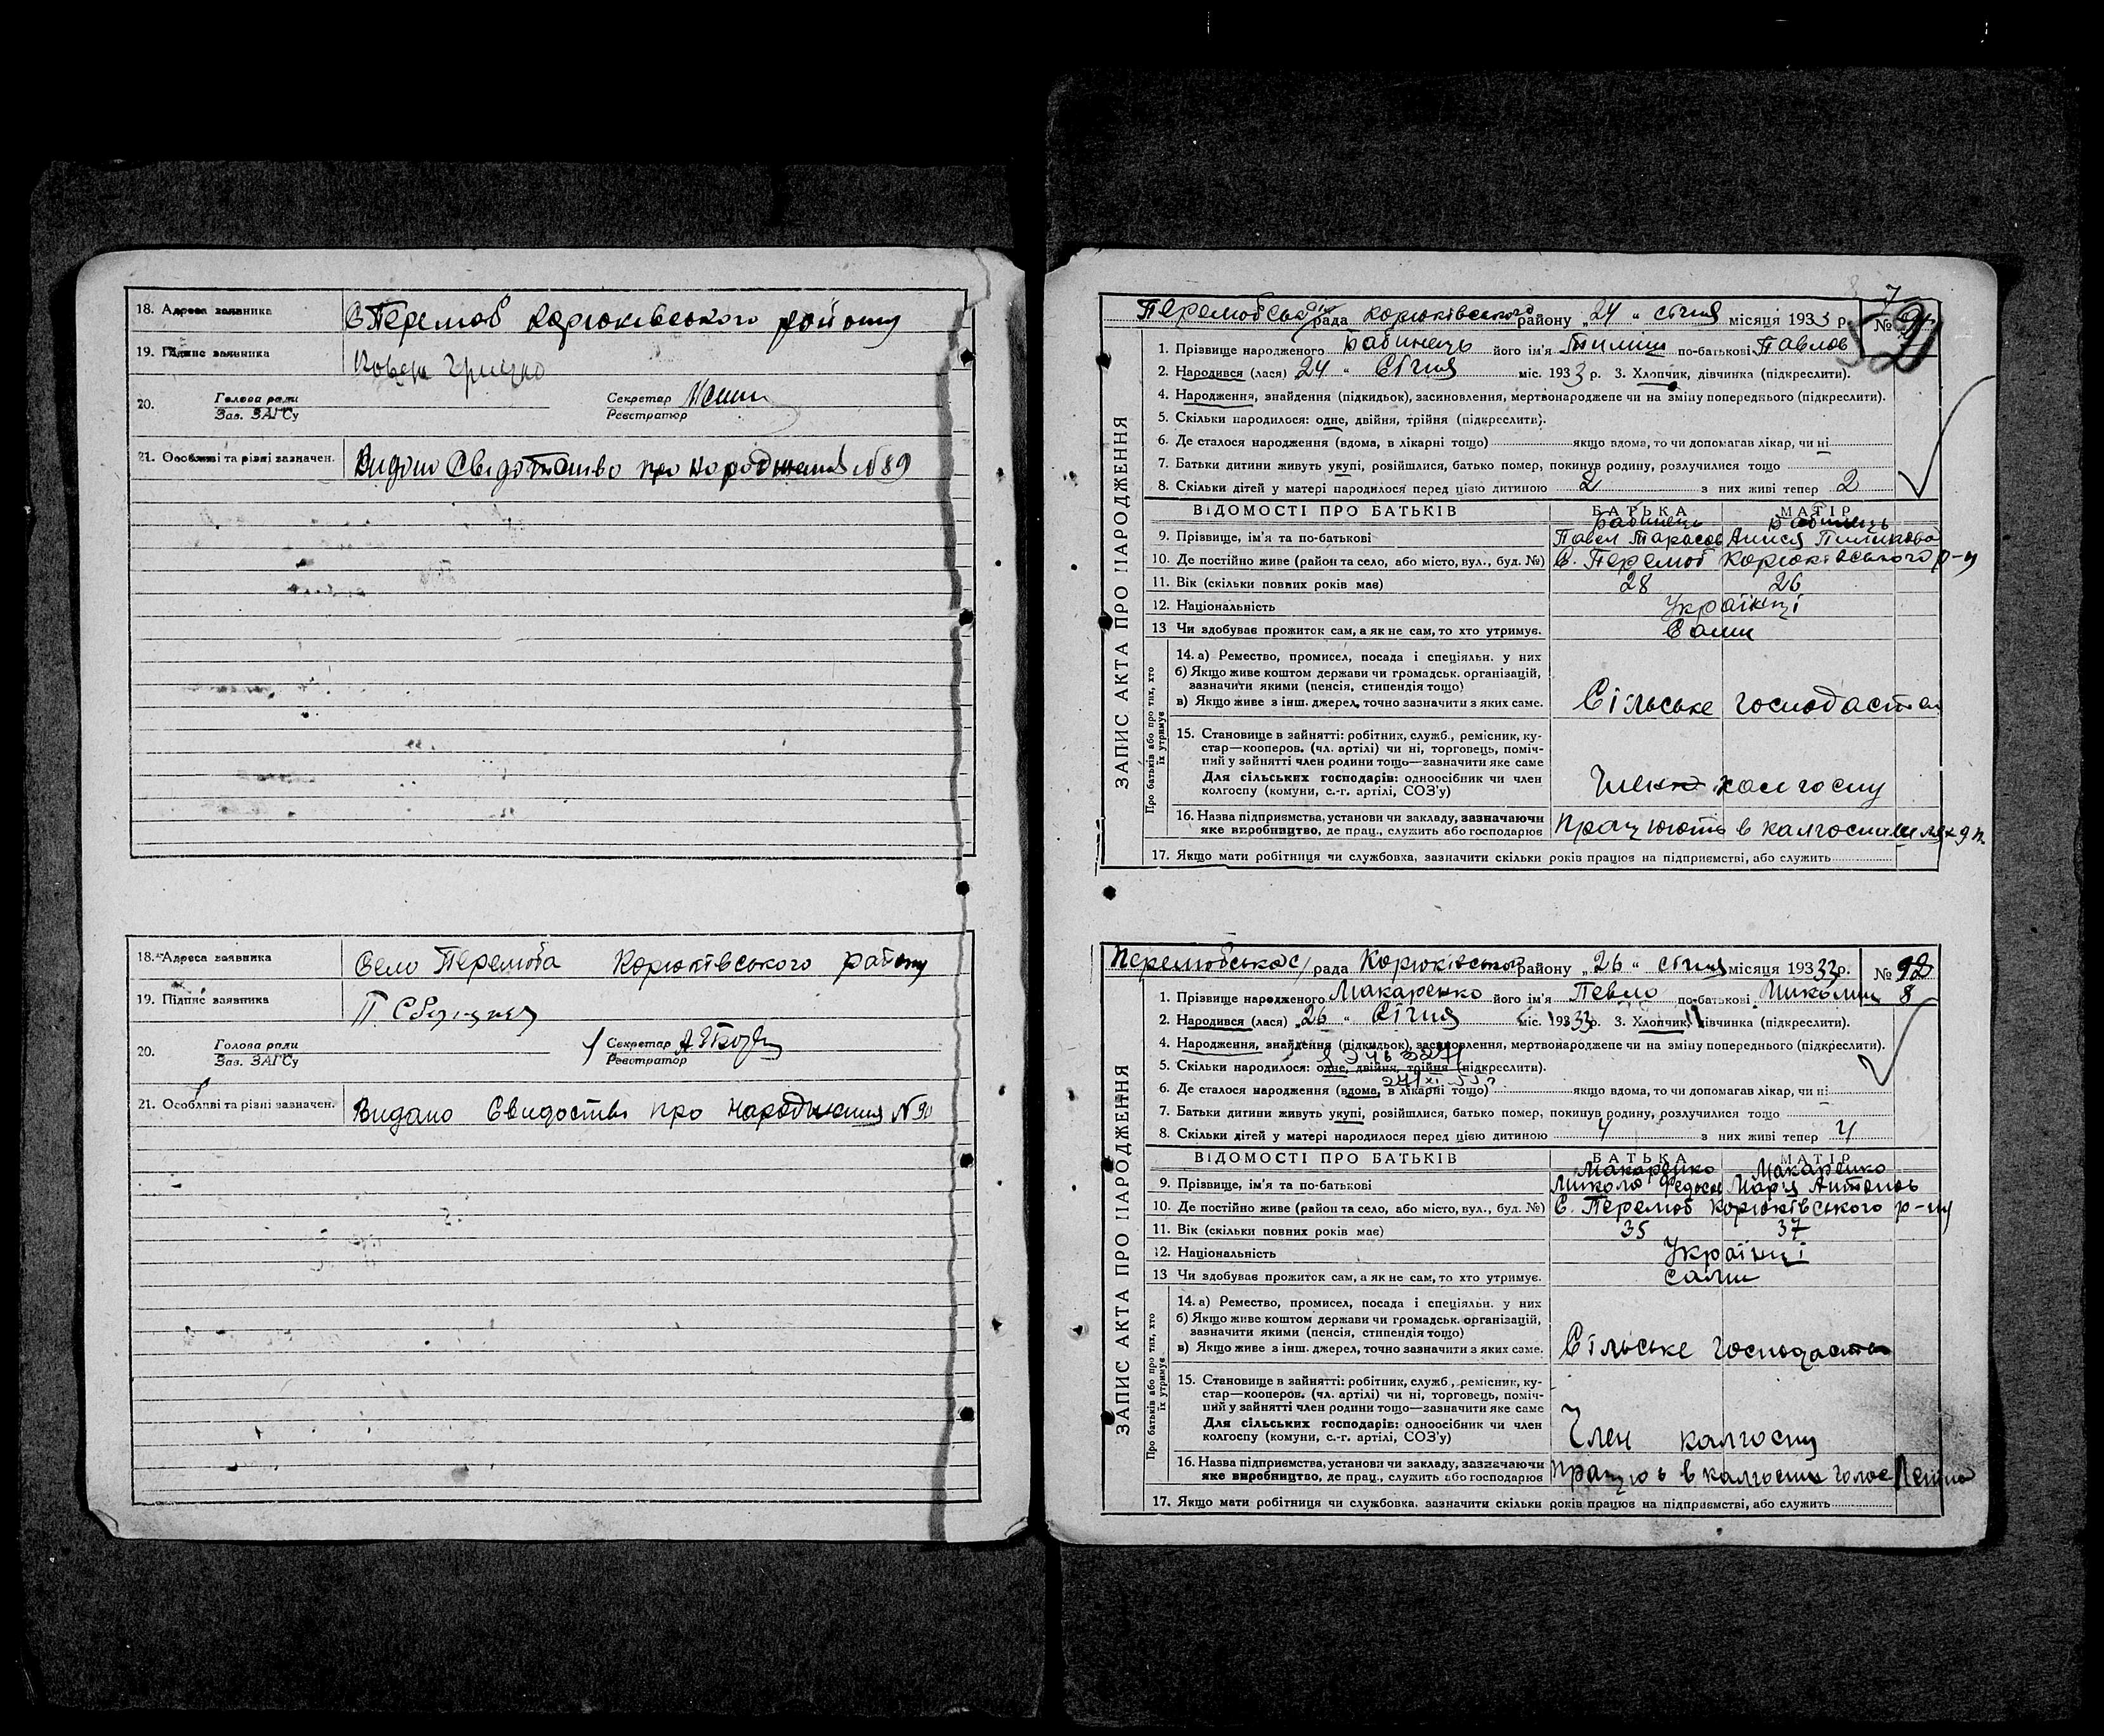 18. Адреса заявника С Перемоб Корюківського району
19. Підпис заявника Грицко
20. Голова ради Секретар
Зав. ЗАГСу Реєстратор
21. Особливі та різні зазначен. Видано Свидотство про народження №89
18. Адреса заявника Село Перемога Корюківського району
19. Підпис заявника П.
20. Голова ради Секретар
Зав. ЗАГСу Реєстратор
21. Особливі та різні зазначен. Видано Свидоство про народження №90
ЗАПИС АКТА ПРО НАРОДЖЕННЯ
рада Корюківського району „24“ січня місяця 1933 р. №
1. Прізвище народженого Бабинець його ім'я по-батькові Павлов
2. Народився (лася) 24 “ Січня міс. 1933 р. 3. Хлопчик, дівчинка (підкреслити).
4. Народження, знайдення (підкидьок), засиновлення, мертвонароджене чи на зміну попереднього (підкреслити).
5. Скільки народилося: одне, двійня, трійня (підкреслити).
6. Де сталося народження (вдома, в лікарні тощо) якщо вдома, то чи допомагав лікар, чи ні
7. Батьки дитини живуть укупі, розійшлися, батько помер, покинув родину, розлучилися тощо
8. Скільки дітей у матері народилося перед цією дитиною 2 з них живі тепер 2
ВІДОМОСТІ ПРО БАТЬКІВ БАТЬКА МАТІР
Бабинець Бабинець
9. Прізвище, ім'я та по-батькові Павел Тарасов
10. Де постійно живе (район та село, або місто, вул., буд. №) С. Перемоб Корюківського р-у
11. Вік (скільки повних років має) 28 26
12. Національність Українці
13 Чи здобуває прожиток сам, а як не сам, то хто утримує. Сами
Про батьків або про тих, хто їх утримує
14. а) Ремество, промисел, посада і спеціяльн. у них
б) Якщо живе коштом держави чи громадськ. організацій,
зазначити якими (пенсія, стипендія тощо)
в) Якщо живе з інш. джерел, точно зазначити з яких саме. Сільське господаства
15. Становище в зайнятті: робітник, служб., ремісник, ку-
стар—кооперов. (чл. артілі) чи ні, торговець, поміч-
ний у зайнятті член родини тощо—зазначити яке саме
Для сільських господарів: одноосібник чи член
колгоспу (комуни, с.-г. артілі, СОЗ'у) калгоспу
16. Назва підприємства, установи чи закладу, зазначаючи
яке виробництво, де прац., служить або господарює Працюють в калгоспи
17. Якщо мати робітниця чи службовха, зазначити скільки років працює на підприємстві, або служить
ЗАПИС АКТА ПРО НАРОДЖЕННЯ
рада Корюківського району „26“ січня місяця 1933 р. №
1. Прізвище народженого Макаренко його ім'я Певло по-батькові 8
2. Народився (лася) „26“ Січня міс. 1933 р. 3. Хлопчик, дівчинка (підкреслити).
4. Народження, знайдення (підкидьок), засиновлення, мертвонароджене чи на зміну попереднього (підкреслити).
5. Скільки народилося: одне, двійня, трійня (підкреслити).
6. Де сталося народження (вдома, в лікарні тощо) якщо вдома, то чи допомагав лікар, чи ні
7. Батьки дитини живуть укупі, розійшлися, батько помер, покинув родину, розлучилися тощо
8. Скільки дітей у матері народилося перед цією дитиною 4 з них живі тепер 4
ВІДОМОСТІ ПРО БАТЬКІВ БАТЬКА МАТІР
Макаренко Макаренко
9. Прізвище, ім'я та по-батькові Микола Марія Антонов
10. Де постійно живе (район та село, або місто, вул., буд. №) С. Перемоб Корюківського р-ну
11. Вік (скільки повних років має) 35 37
12. Національність Українці
13 Чи здобуває прожиток сам, а як не сам, то хто утримує. сами
Про батьків або про тих, хто їх утримує
14. а) Ремество, промисел, посада і спеціяльн. у них
б) Якщо живе коштом держави чи громадськ. організацій,
зазначити якими (пенсія, стипендія тощо)
в) Якщо живе з інш. джерел, точно зазначити з яких саме. Сільське господаства
15. Становище в зайнятті: робітник, служб., ремісник, ку-
стар—кооперов. (чл. артілі) чи ні, торговець, поміч-
ний у зайнятті член родини тощо—зазначити яке саме
Для сільських господарів: одноосібник чи член
колгоспу (комуни, с.-г. артілі, СОЗ'у) Член калгоспу
16. Назва підприємства, установи чи закладу, зазначаючи
яке виробництво, де прац., служить або господарює в калгоспи голос Леніна
17. Якщо мати робітниця чи службовка. зазначити скільки років працює на підприємстві, або служить